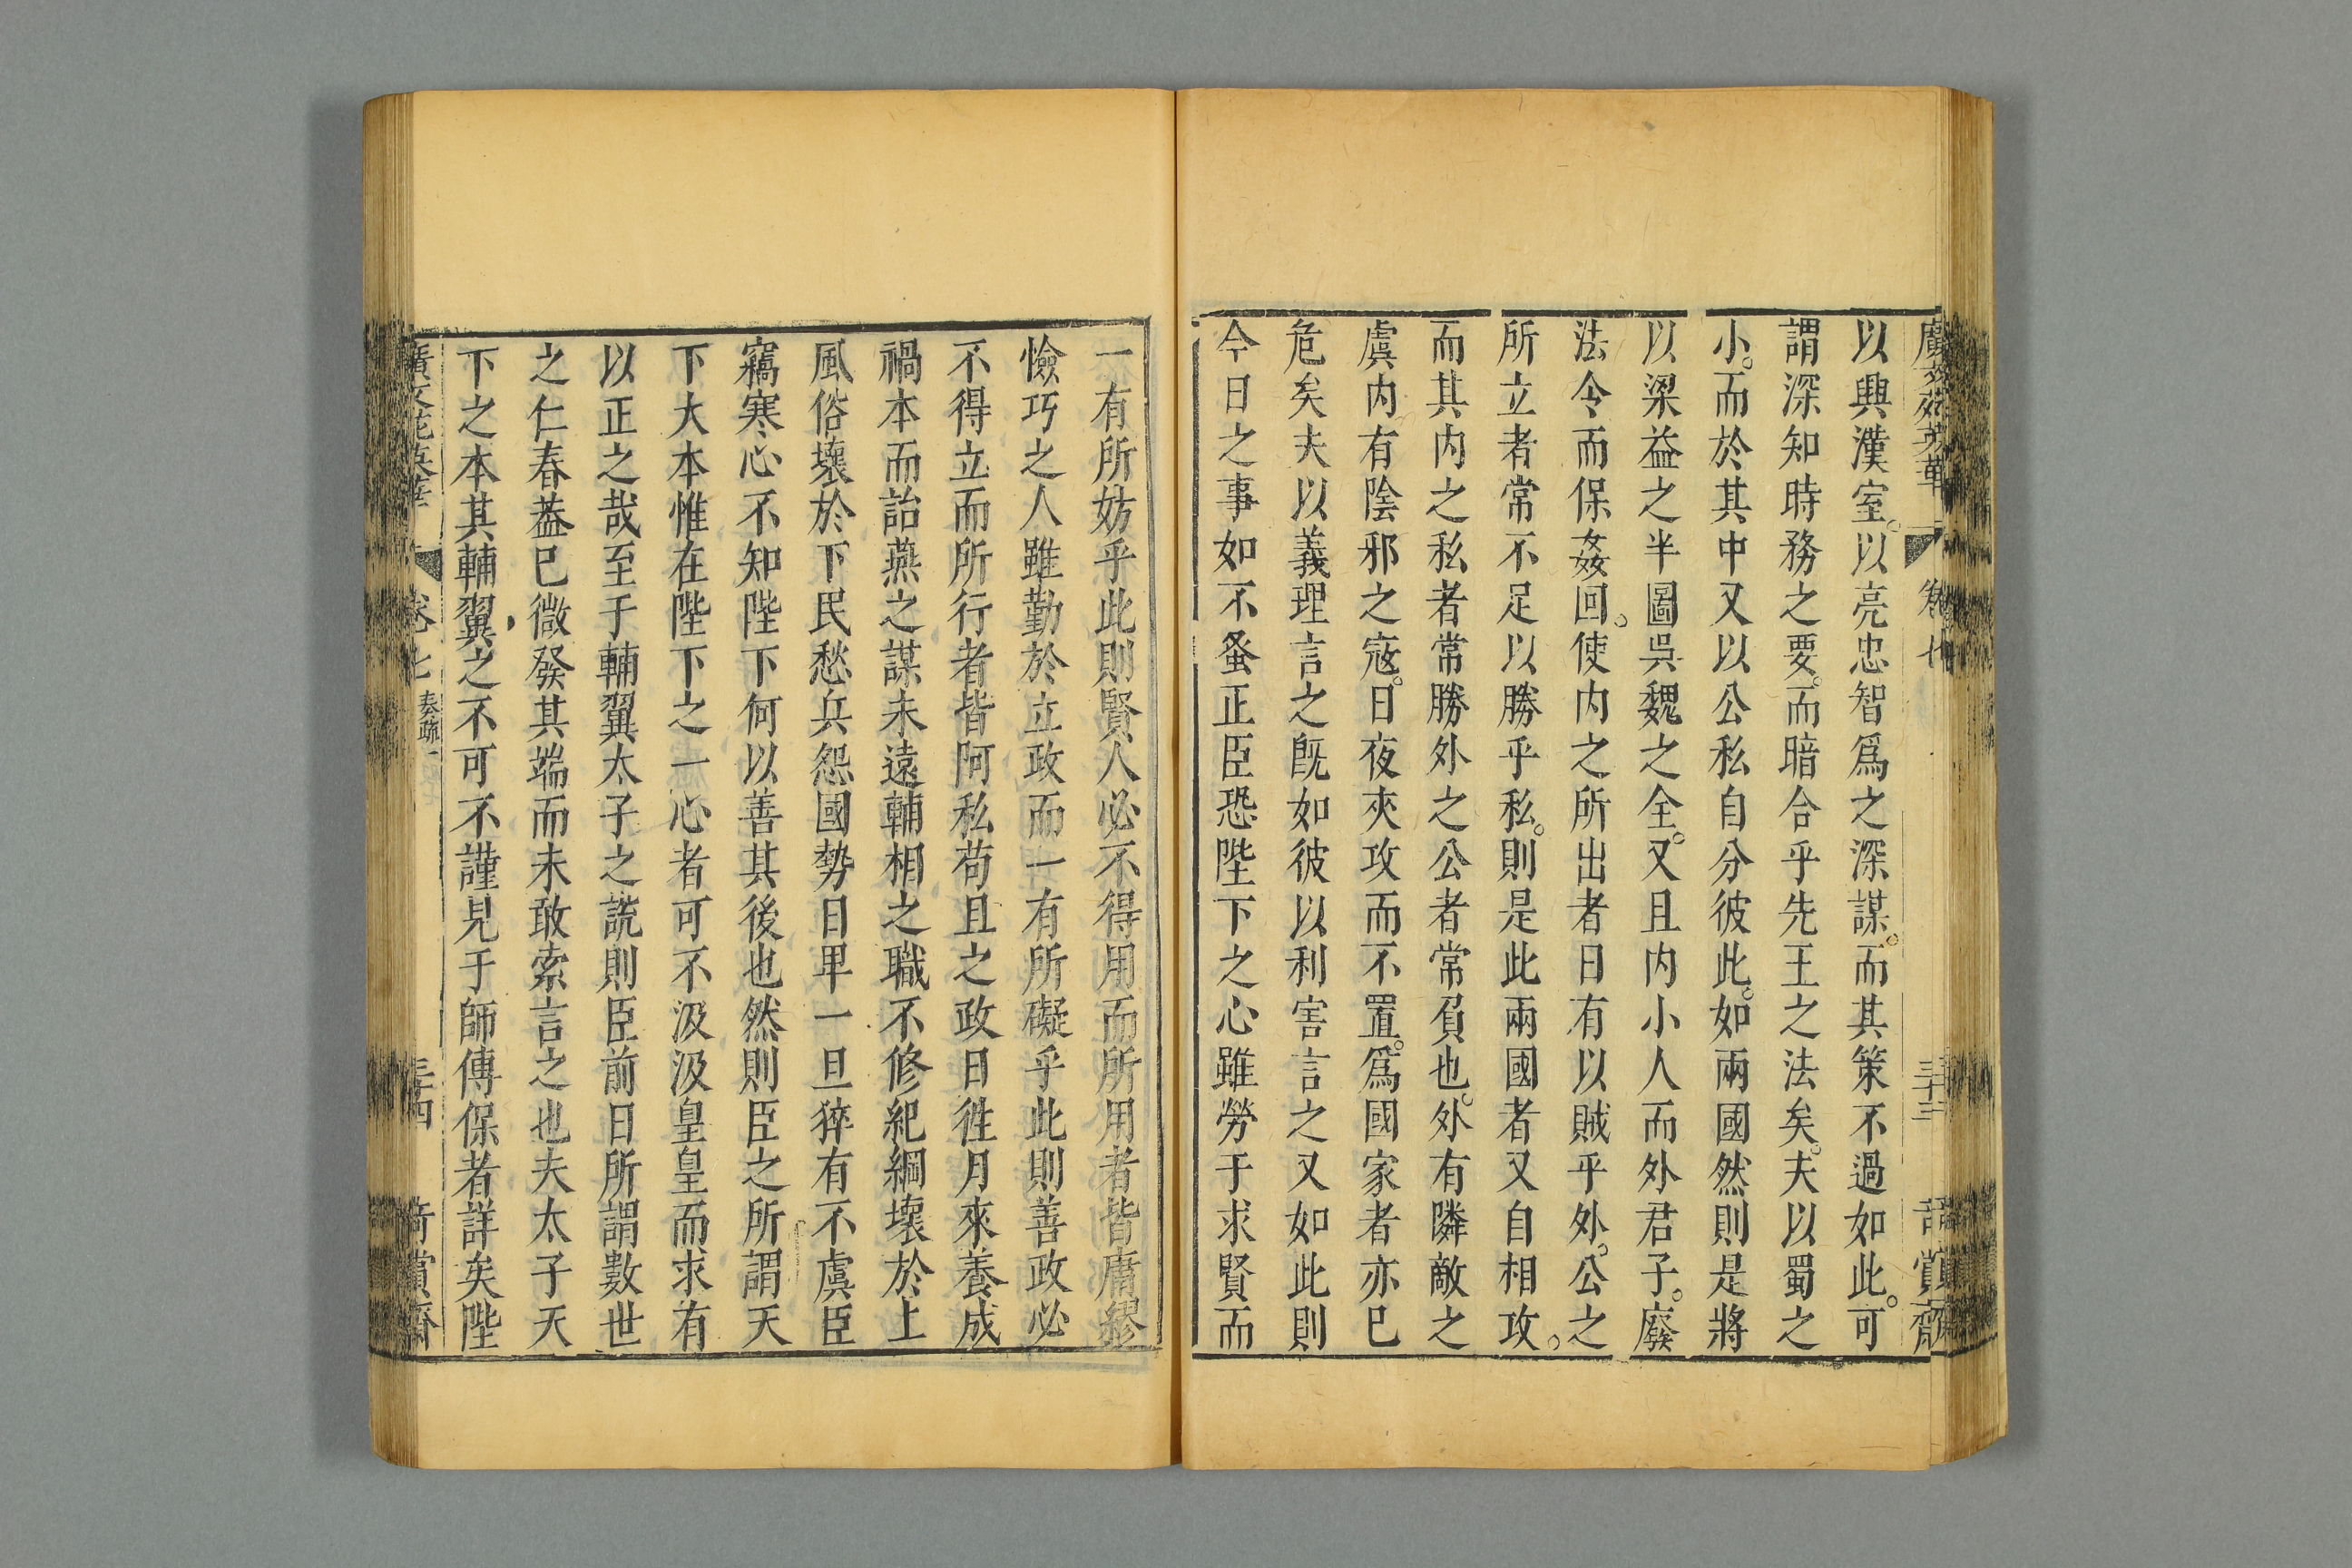 以興漢室以亮忠智爲之深謀而其策不過如此可
謂深知時務之要而暗合乎先王之法矣夫以蜀之
小而於其中又以公私自分彼此如兩國然則是將
以梁益之半圖吳魏之全又且內小人而外君子廢
法令而保姦回使內之所出者日有以賊乎外公之
所立者常不足以勝乎私則是此兩國者又自相攻
而其內之私者常勝外之公者常負也外有隣敵之
虞內有陰邪之寇日夜夾攻而不置爲國家者亦已
危矣夫以義理言之旣如彼以利害言之又如此則
今日之事如不蚤正臣恐陛下之心雖勞于求賢而
一有所妨乎此則賢人必不得用而所用者皆庸繆
憸巧之人雖勤於立政而一有所礙乎此則善政必
不得立而所行者皆阿私苟且之政日徃月來養成
禍本而詒燕之謀未遠輔相之職不修紀綱壞於上
風俗壞於下民愁兵怨國勢日卑一旦猝有不虞臣
竊寒心不知陛下何以善其後也然則臣之所謂天
下大本惟在陛下之一心者可不汲汲皇皇而求有
以正之哉至于輔翼太子之說則臣前日所謂數世
之仁春葢已微發其端而未敢索言之也夫太子天
下之本其輔翼之不可不謹見于師傅保者詳矣陛
廣文苑英華 卷七 奏疏一 三十四 奇賞齋